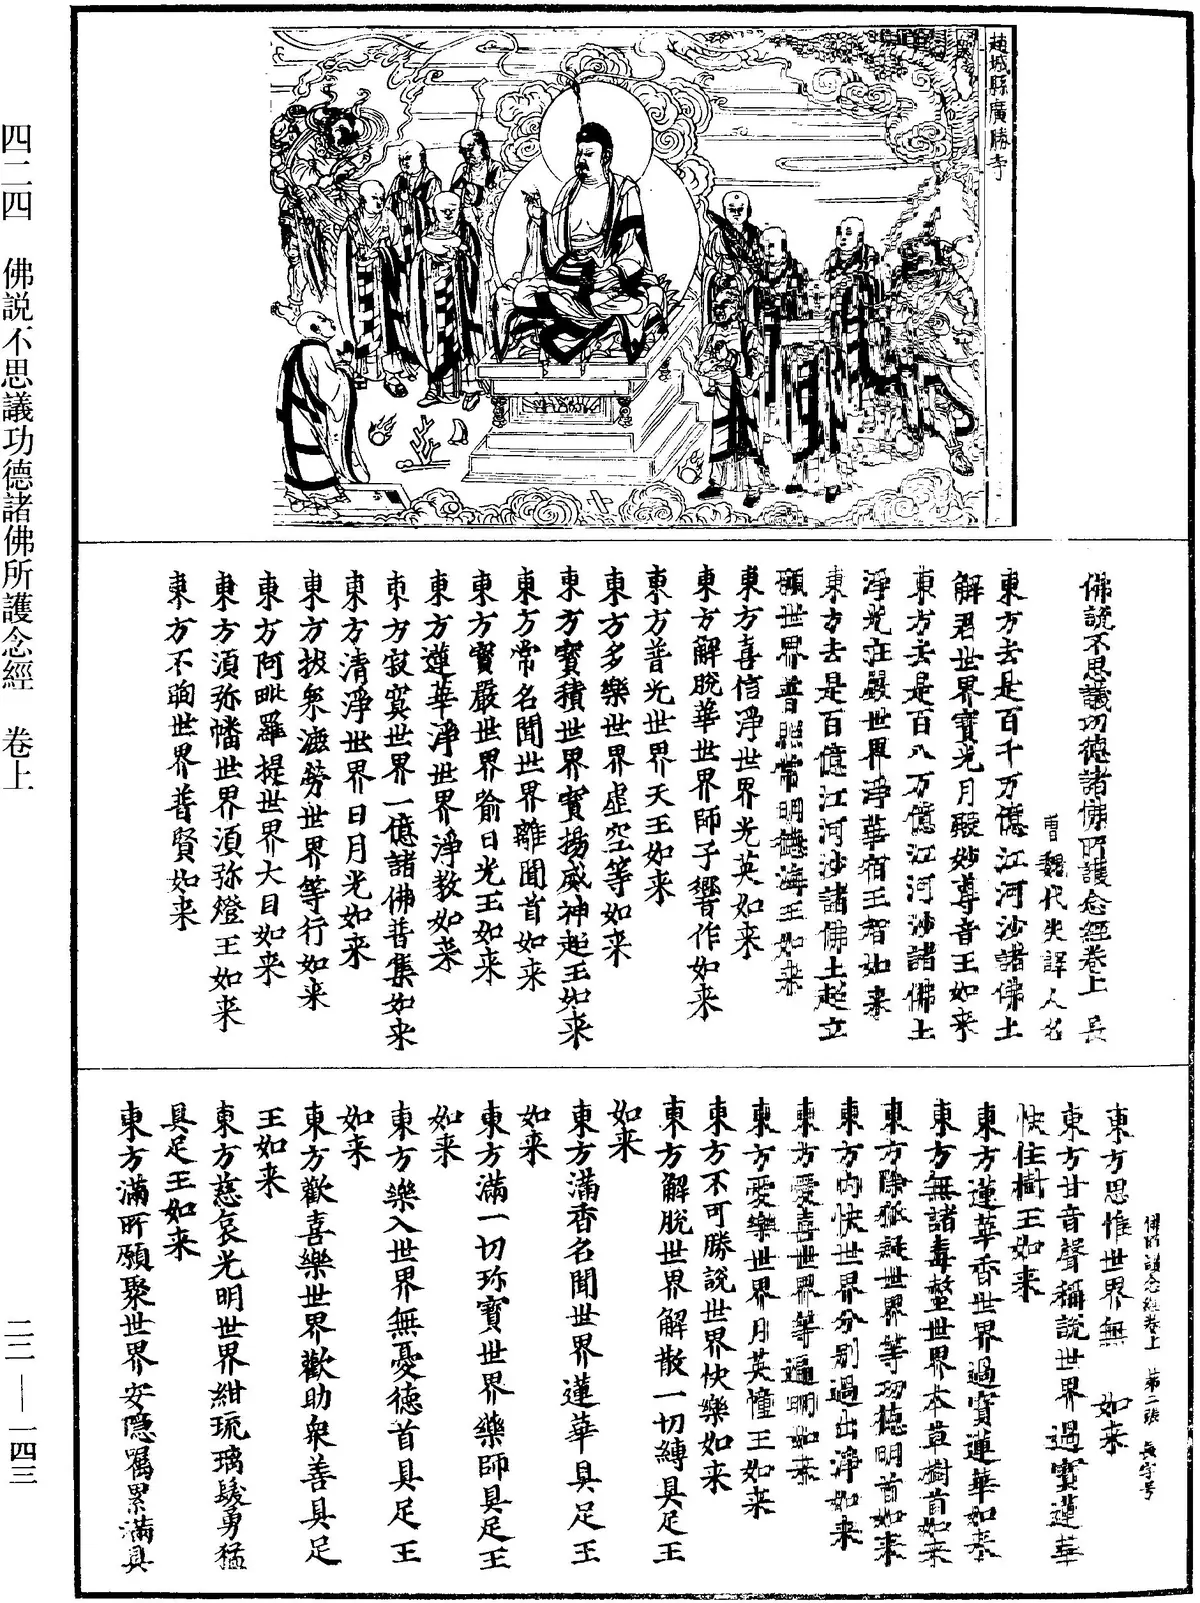 趙城縣廣勝寺
佛說不思議功德諸佛所護念經卷上 長
曹魏代失譯人名
東方去是百千万億江河沙諸佛土
解君世界寶光月殿妙尊音王如来
東方去是百八万億江河沙諸佛土
淨光莊嚴世界淨華宿王智如来
東方去是百億江河沙諸佛土超立
願世界普照常明德海王如来
東方喜信淨世界光英如来
東方解脫華世界師子響作如来
東方普光世界天王如来
東方多樂世界虛空等如来
東方寶積世界寶揚威神超王如来
東方常名聞世界離聞首如来
東方寶嚴世界踰日光王如来
東方蓮華淨世界淨教如来
東方寂寞世界一億諸佛普集如来
東方清淨世界日月光如来
東方披衆漉勞世界等行如来
東方阿毗羅提世界大目如来
東方須弥幡世界須弥燈王如来
東方不眴世界普賢如来
佛所護念經卷上 第二張 長字号
東方思惟世界無 如来
東方甘音聲稱說世界過寶蓮華
快住樹王如来
東方蓮華香世界過寶蓮華如来
東方無諸毒螫世界本草樹首如来
東方除狐疑世界等功德明首如来
東方內快世界分別過出淨如来
東方愛喜世界等遍明如来
東方愛樂世界月英幢王如来
東方不可勝說世界快樂如来
東方解脫世界解散一切縛具足王
如来
東方滿香名聞世界蓮華具足王
如来
東方滿一切珎寶世界藥師具足王
如来
東方樂入世界無憂德首具足王
如来
東方歡喜樂世界歡助衆善具足
王如来
東方慈哀光明世界紺琉璃髮勇猛
具足王如来
東方滿所願聚世界安隱囑累滿具
四二四 佛説不思議功德諸佛所護念經 卷上
二二—一四三